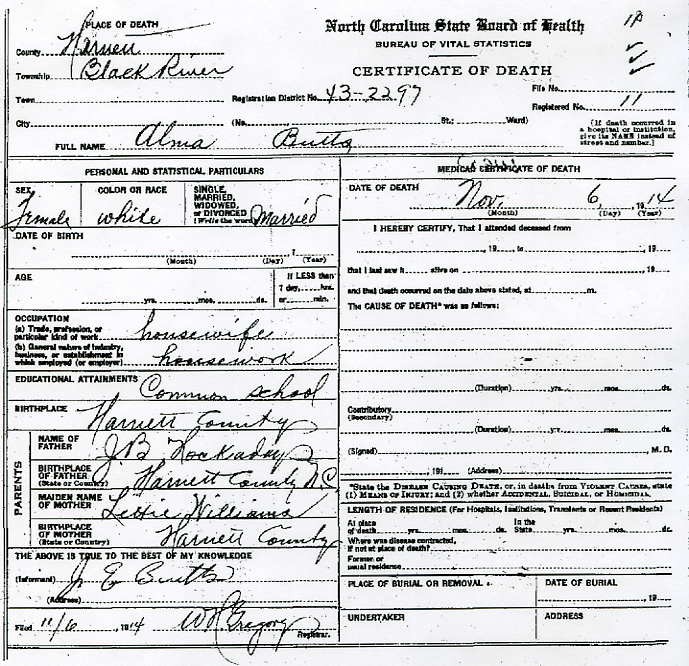 PLACE OF DEATH
North Carolina State Board of Health
BUREAU OF VITAL STATISTICS
CERTIFICATE OF DEATH
County Harnett
Township Black River
Town
Registration District No. 43-2297
File No.
Registered No. 11
City
(No. St.; Ward)
[If death occurred in a hospital or institution, give its NAME instead of street and number.]
FULL NAME Alma Butts
PERSONAL AND STATISTICAL PARTICULARS
SEX Female
COLOR OR RACE white
SINGLE, MARRIED, WIDOWED, or DIVORCED (Write the word) Married
DATE OF BIRTH
(Month) (Day) (Year)
AGE
yrs. mos. ds.
If LESS than
1 day, hrs.
or min.
OCCUPATION
(a) Trade, profession, or particular kind of work housewife
(b) General nature of industry, business, or establishment in which employed (or employer) housework
EDUCATIONAL ATTAINMENTS Common school
BIRTHPLACE Harnett County
PARENTS
NAME OF FATHER J B Hockaday
BIRTHPLACE OF FATHER (State or Country) Harnett County N C
MAIDEN NAME OF MOTHER Williams
BIRTHPLACE OF MOTHER (State or Country) Harnett County
THE ABOVE IS TRUE TO THE BEST OF MY KNOWLEDGE
(Informant) J. E Butts
(Address)
Filed 11/6, 1914 W Gregory Registrar.
MEDICAL CERTIFICATE OF DEATH
DATE OF DEATH Nov. 6, 1914
(Month) (Day) (Year)
I HEREBY CERTIFY, That I attended deceased from
, 19 to , 19
that I last saw h alive on , 19
and that death occurred on the date above stated, at m.
The CAUSE OF DEATH* was as follows:
(Duration) yrs. mos. ds.
Contributory
(Secondary)
(Duration) yrs. mos. ds.
(Signed) M. D.
, 191 (Address)
*State the DISEASE CAUSING DEATH, or, in deaths from VIOLENT CAUSES, state
(1) MEANS OF INJURY; and (2) whether ACCIDENTAL, SUICIDAL, or HOMICIDAL.
LENGTH OF RESIDENCE (For Hospitals, Institutions, Transients or Recent Residents)
At place of death yrs. mos. ds. In the State yrs. mos. ds.
Where was disease contracted,
if not at place of death?
Former or
usual residence
PLACE OF BURIAL OR REMOVAL
DATE OF BURIAL
, 19
UNDERTAKER
ADDRESS